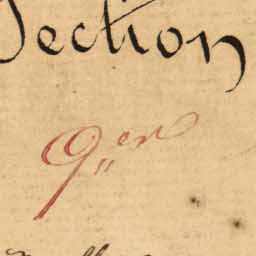 Section
9en